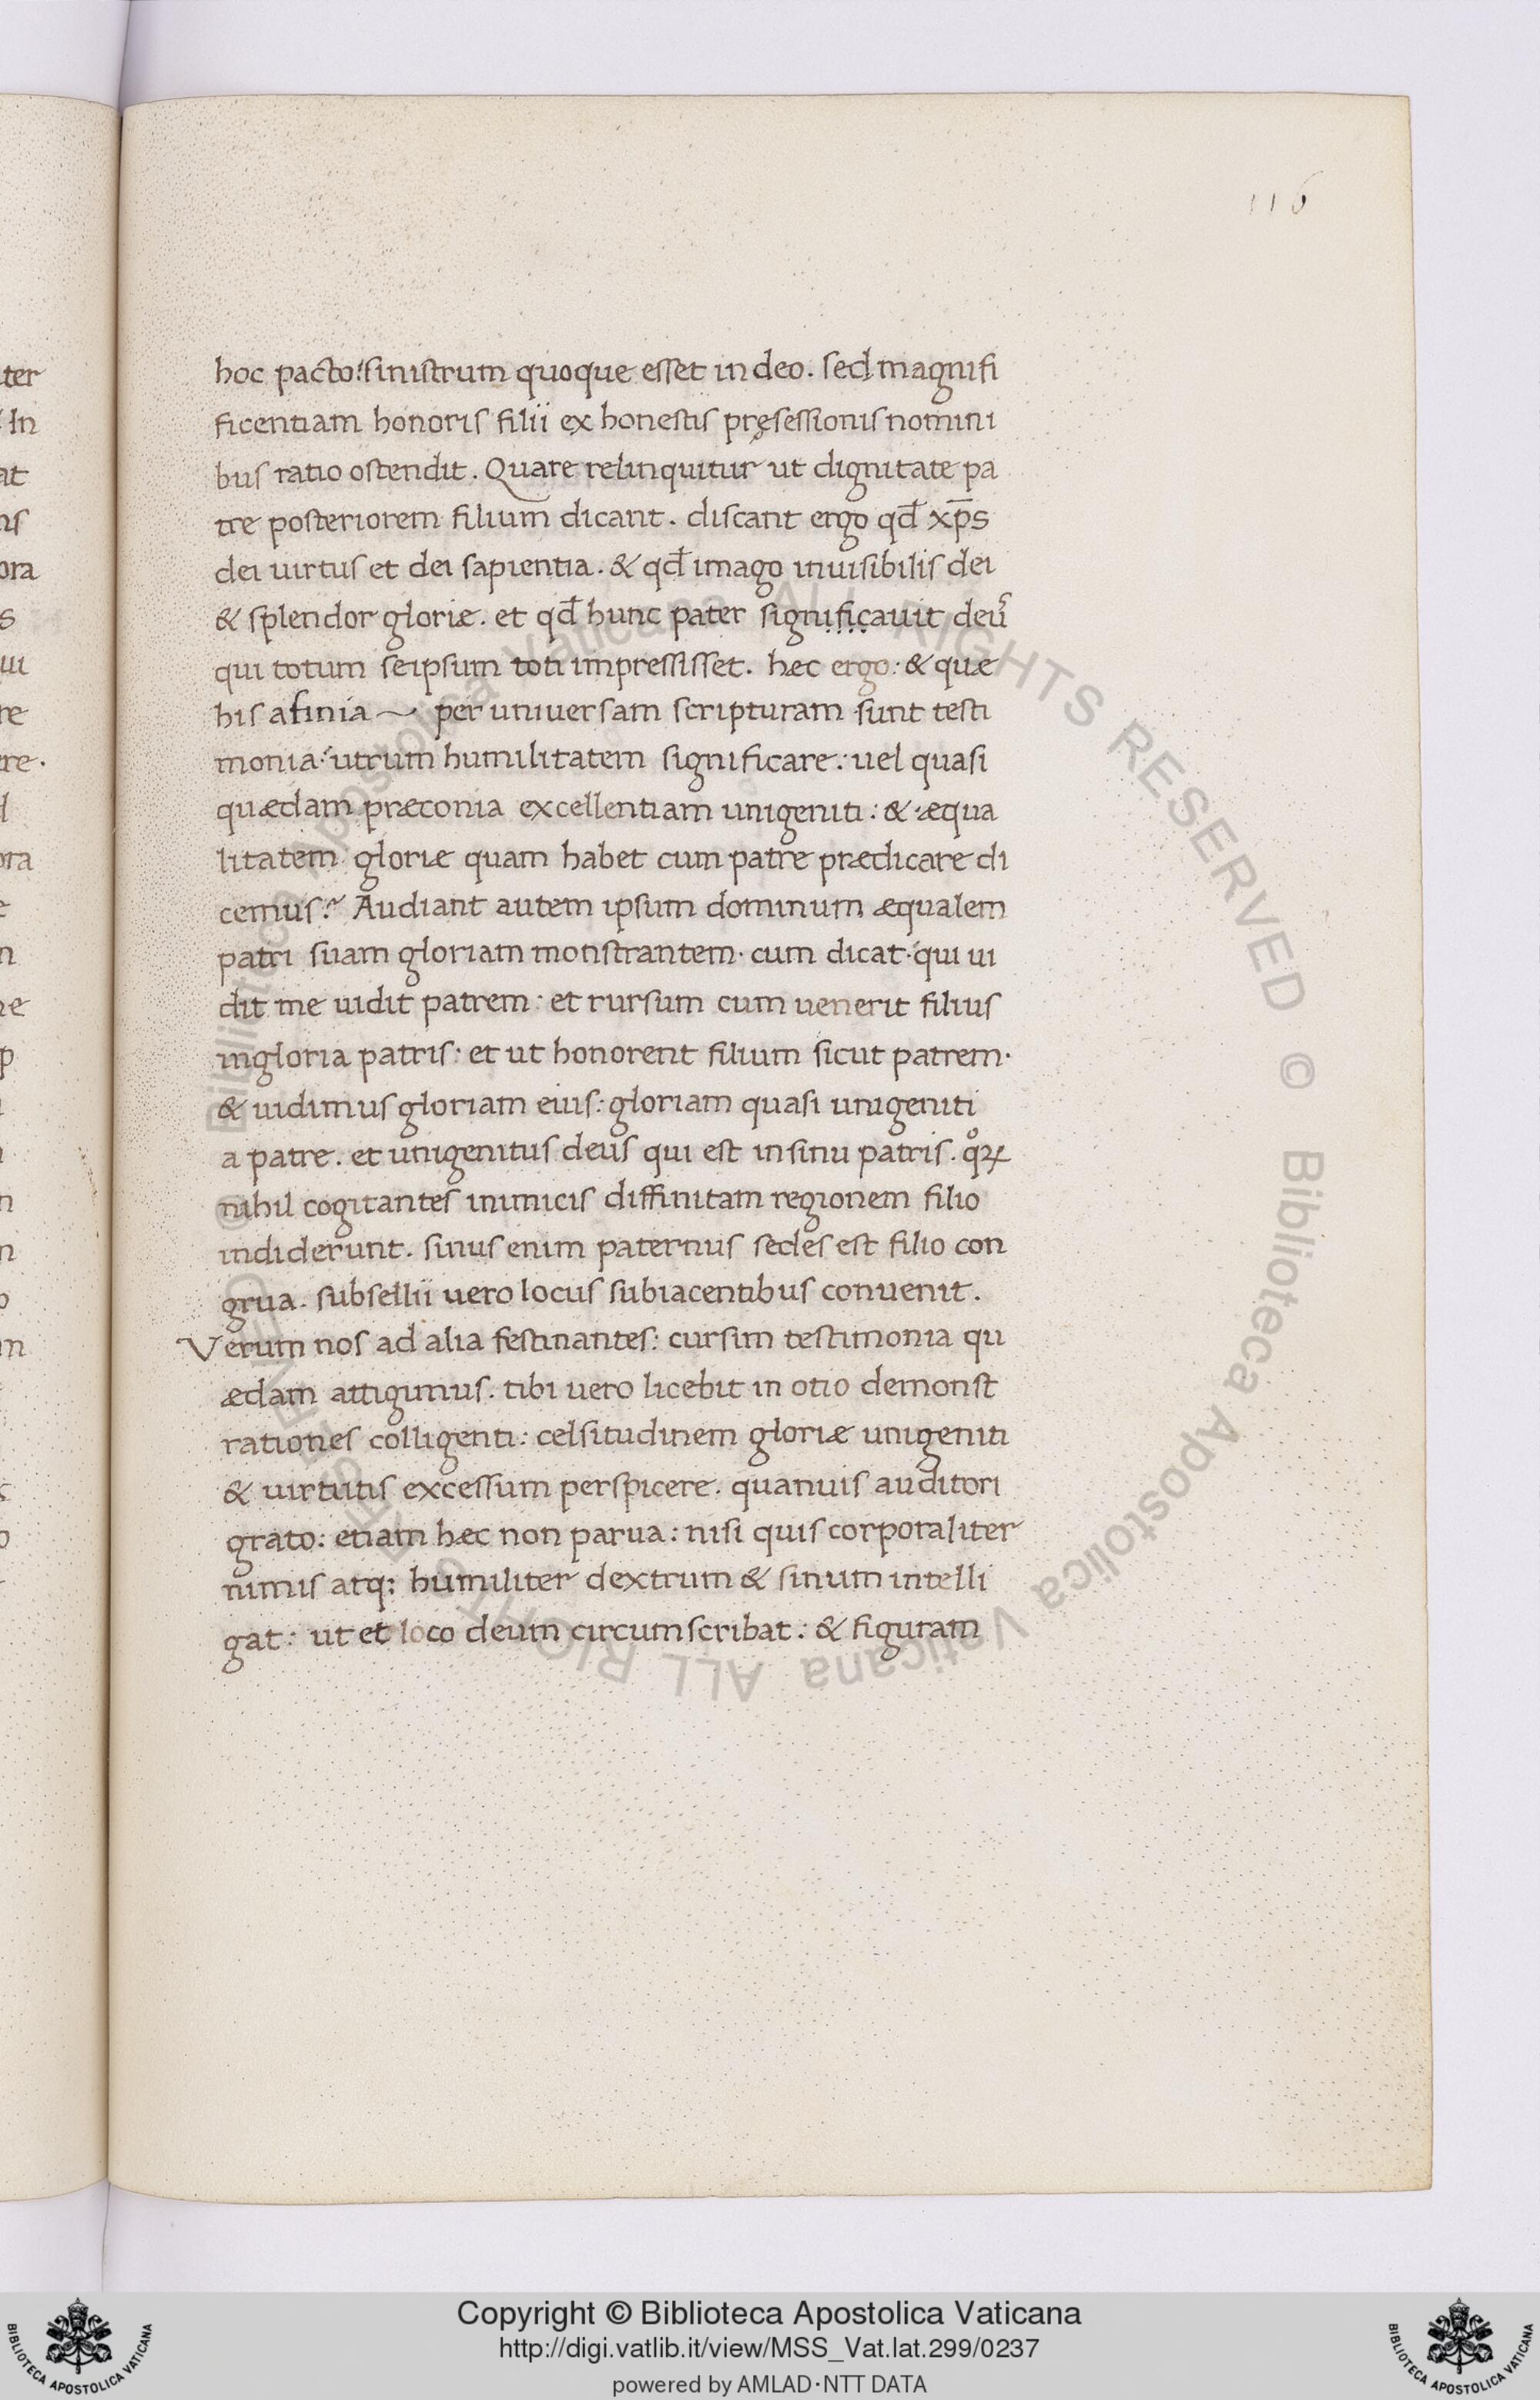 116
hoc pacto: sinistrum quoque esset in deo. sed magnifi
ficentiam honoris filii ex honestis pręsessionis nomini
bus ratio ostendit. Quare relinquitur ut dignitate pa
tre posteriorem filium dicant. discant ergo qđ xp̄s
dei uirtus et dei sapientia. & qđ imago inuisibilis dei
& splendor gloriæ. et qđ hunc pater significauit deū
qui totum seipsum toti impressisset. hæc ergo: & quæ
his afinia ~ per uniuersam scripturam sunt testi
monia: utrum humilitatem significare: uel quasi
quædam præconia excellentiam unigeniti: & æqua
litatem gloriæ quam habet cum patre prædicare di
cemus? Audiant autem ipsum dominum æqualem
patri suam gloriam monstrantem. cum dicat: qui ui
dit me uidit patrem: et rursum cum uenerit filius
in gloria patris: et ut honorent filium sicut patrem.
& uidimus gloriam eius: gloriam quasi unigeniti
a patre. et unigenitus deus qui est in sinu patris. qͦꝝ
nihil cogitantes inimicis diffinitam regionem filio
indiderunt. sinus enim paternus sedes est filio con
grua. subsellii uero locus subiacentibus conuenit.
Verum nos ad alia festinantes: cursim testimonia qu
ædam attigimus. tibi uero licebit in otio demonst
rationes colligenti: celsitudinem gloriæ unigeniti
& uirtutis excessum perspicere. quanuis auditori
grato: etiam hæc non parua: nisi quis corporaliter
nimis atq; humiliter dextrum & sinum intelli
gat: ut et loco deum circumscribat: & figuram
© Biblioteca Apostolica Vaticana ALL RIGHTS RESERVED © Biblioteca Apostolica Vaticana ALL RIGHTS RESERVED
Copyright © Biblioteca Apostolica Vaticana
http://digi.vatlib.it/view/MSS_Vat.lat.299/0237
powered by AMLAD·NTT DATA
BIBLIOTECA APOSTOLICA VATICANA
BIBLIOTECA APOSTOLICA VATICANA